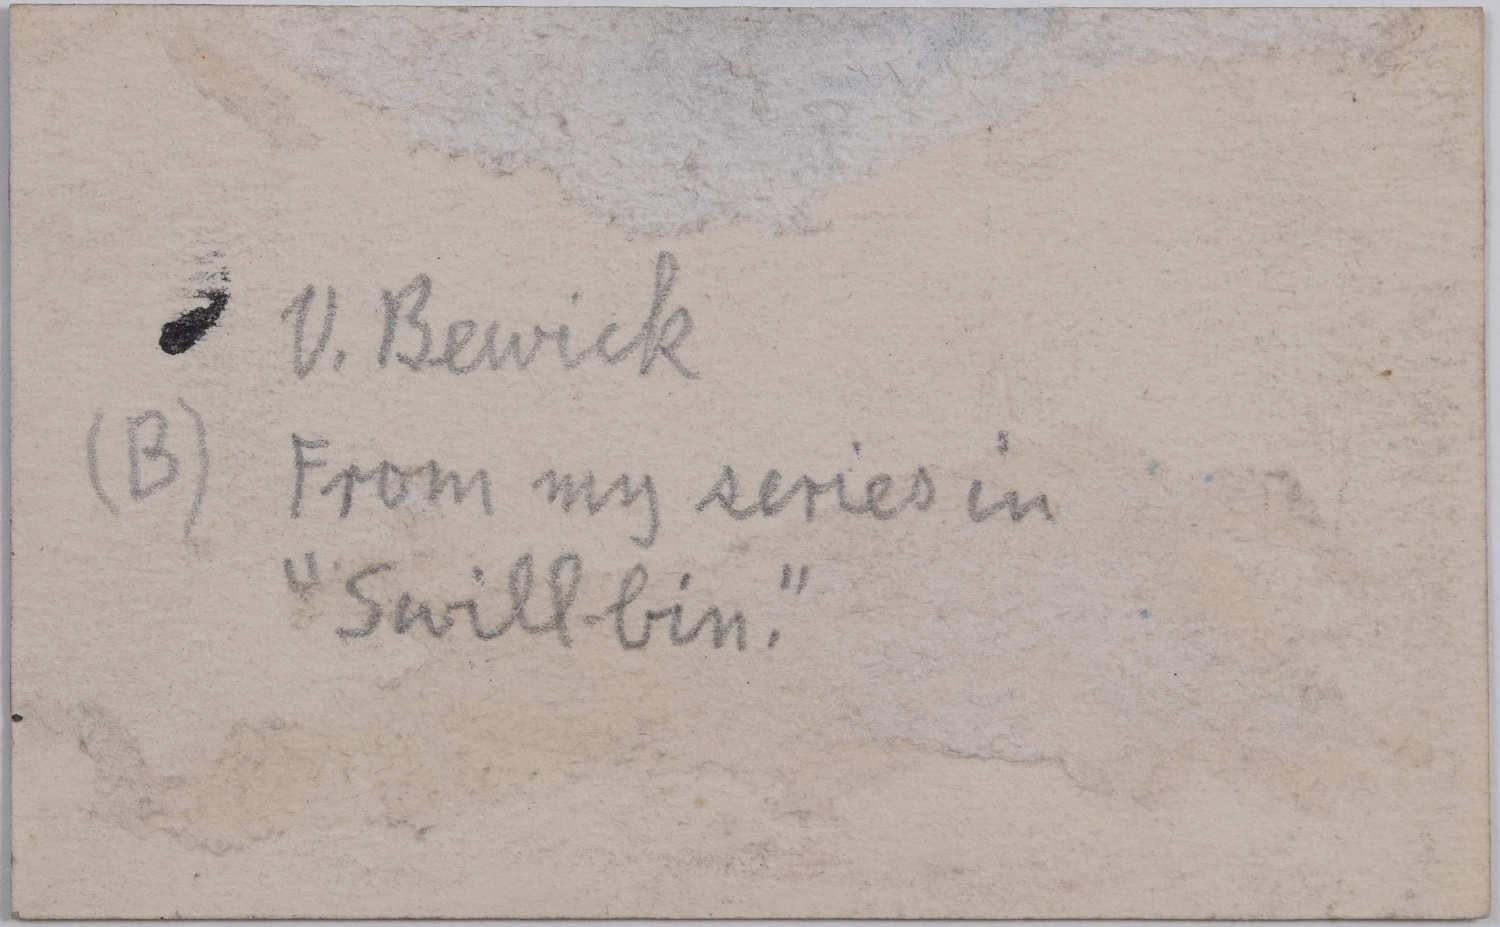 V. Bewick
(B) From my series in
"Swill-bin."